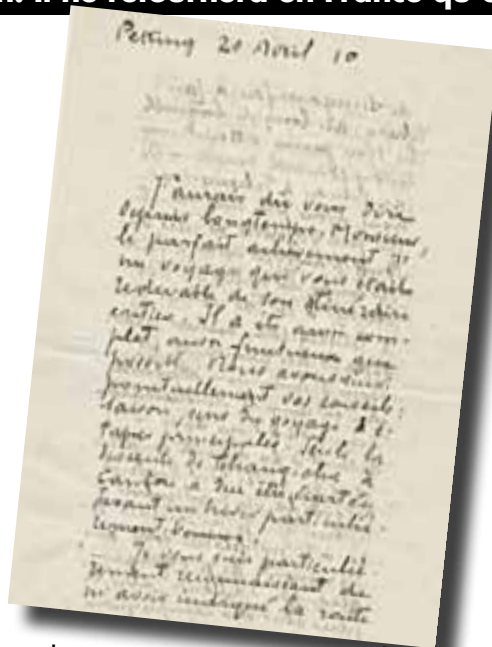 Il ne retournera en France
Peking 20 Avril 10
J'aurais dû vous dire
depuis longtemps, Monsieur,
le parfait achèvement d'
un voyage qui vous était
redevable de son itinéraire
entier. Il a été aussi com-
plet, aussi fructueux que
possible. Nous avons suivi
ponctuellement vos conseils :
saison, sens du voyage, é-
tapes principales. Seule la
descente de à
Canton a dû être écartée
un particuliè-
rement
Je vous suis particuliè-
rement reconnaissant de
m'avoir indiqué la route